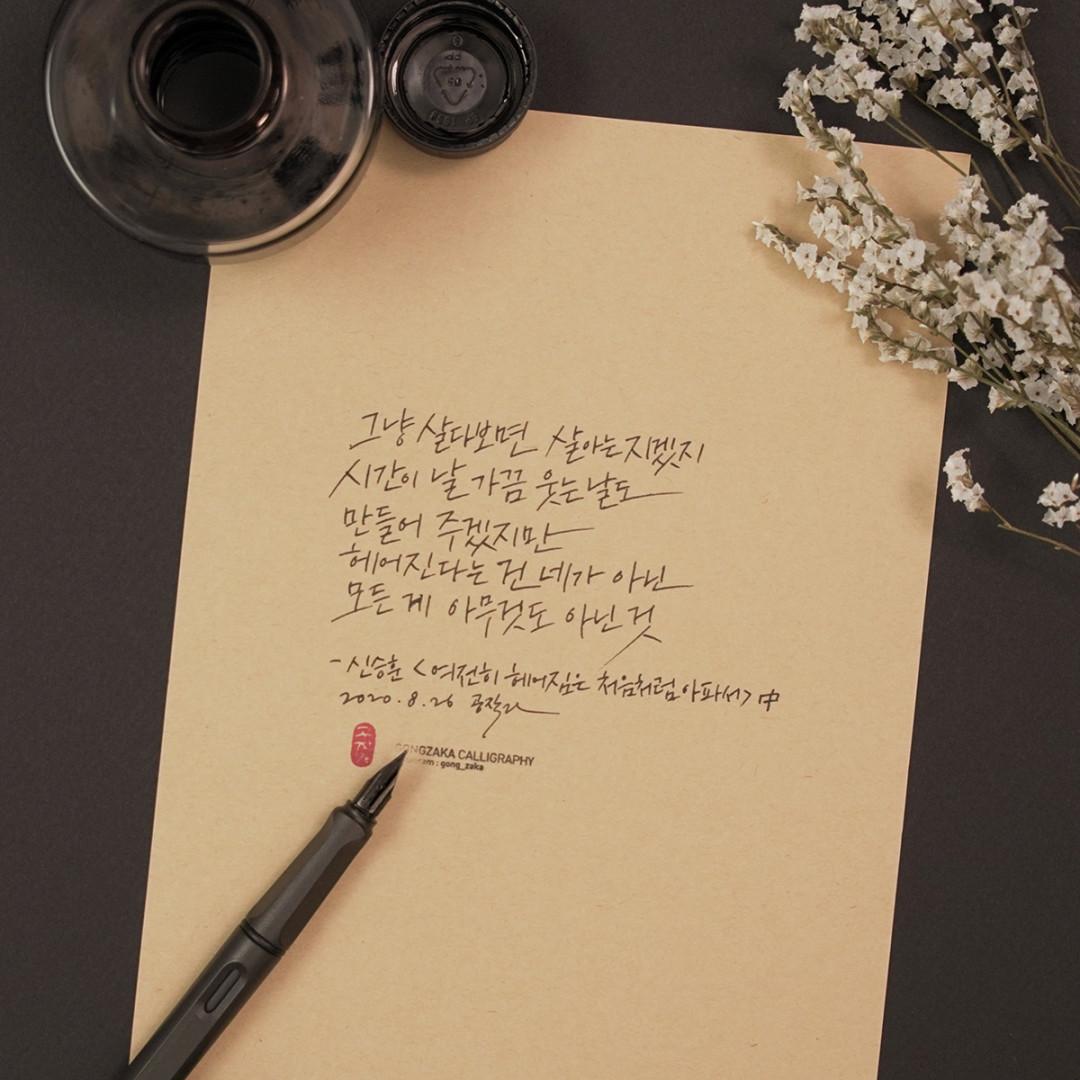 그냥 살다보면 살아는지겠지
시간이 날 가끔 웃는 날도
만들어 주겠지만
헤어진다는 건 네가 아닌
모든 게 아무것도 아닌 것
- 신승훈 <여전히 헤어짐은 처음처럼 아파서> 中
2020.8.26 공작가
GONGZAKA CALLIGRAPHY
: gong_zaka